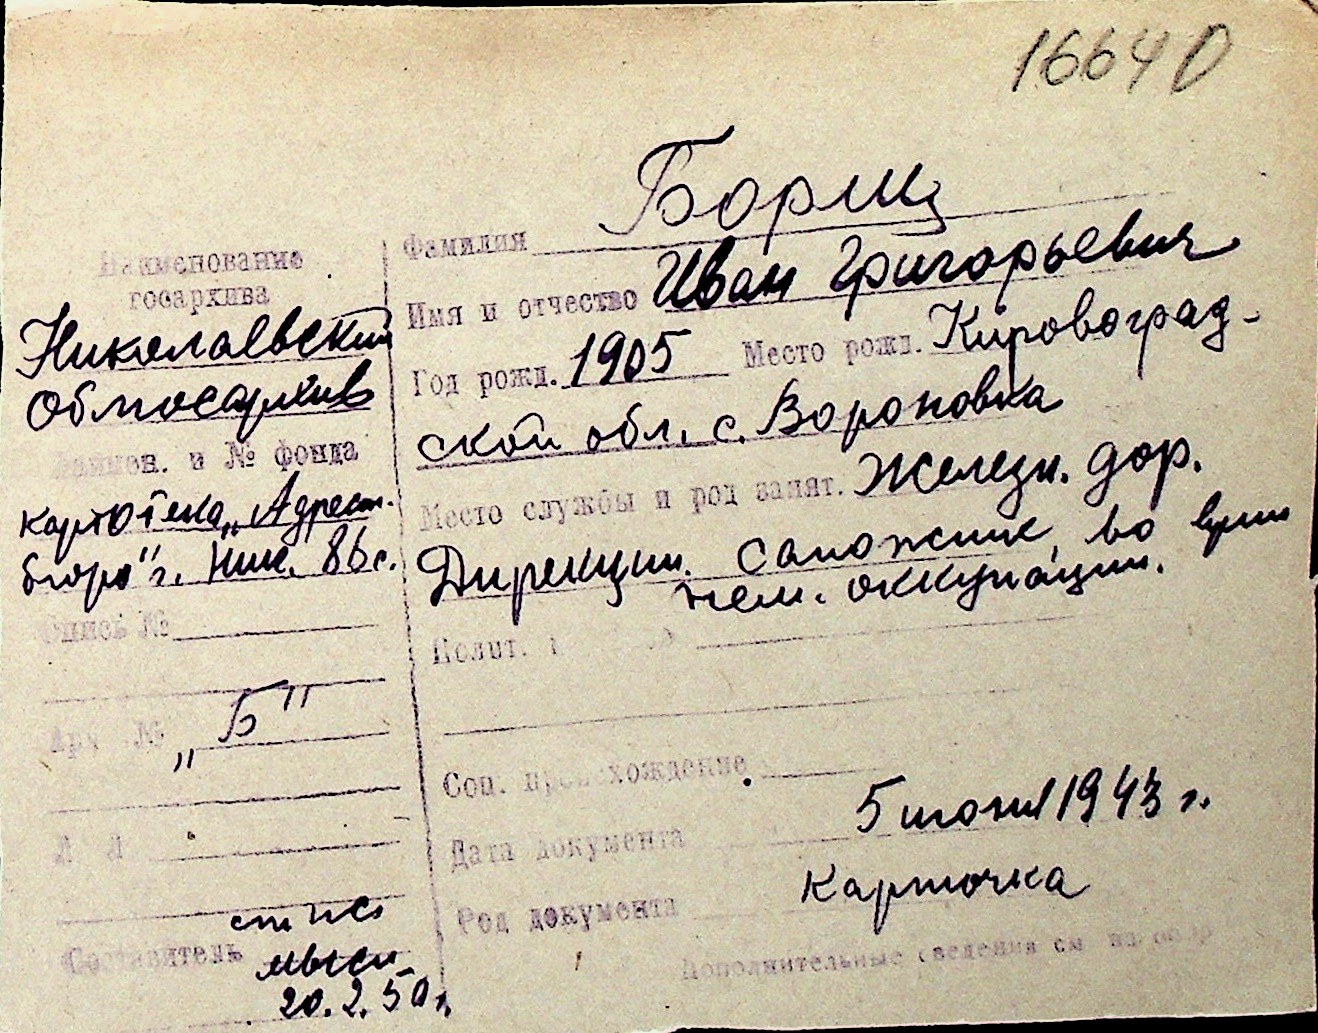 16640
Наименование
госархива
Николаевский
Облгосархив
Наимен. и № фонда
картотека „Адресн.
бюро" г. Ник. 86 с.
Опись №
Арх №
„Б"
Л Л
Составитель
20.2.50 г.
Фамилия Борщ
Имя и отчество Иван Григорьевич
Год рожд. 1905 Место рожд. Кировоград-
ской обл. с. Вороновка
Место службы и род занят. Железн. дор.
Дирекции. сапожник, во время
нем. оккупации.
Полит.
Соц. происхождение
Дата документа 5 июня 1943 г.
Род документа карточка
Дополнительные сведения см на обор